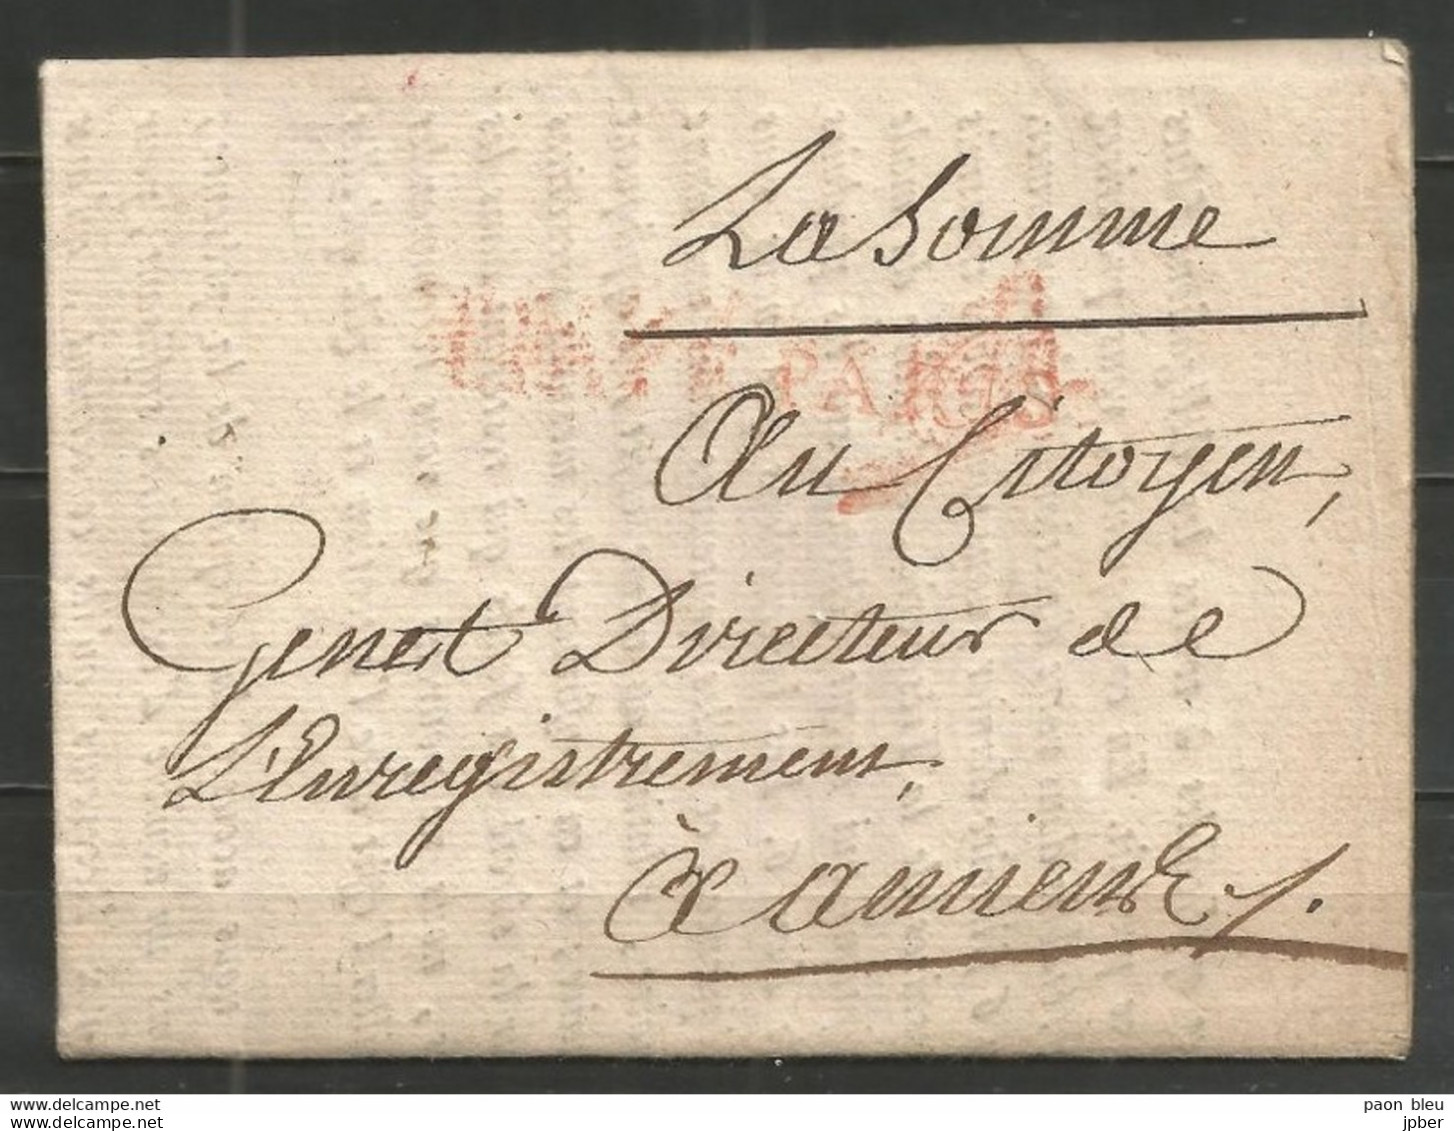 La Somme
PARIS
Au Citoyen,
Genet Directeur de
L'Enregistrement,
à amiens
www.delcampe.net
www.delcampe.net
paon bleu
jpber